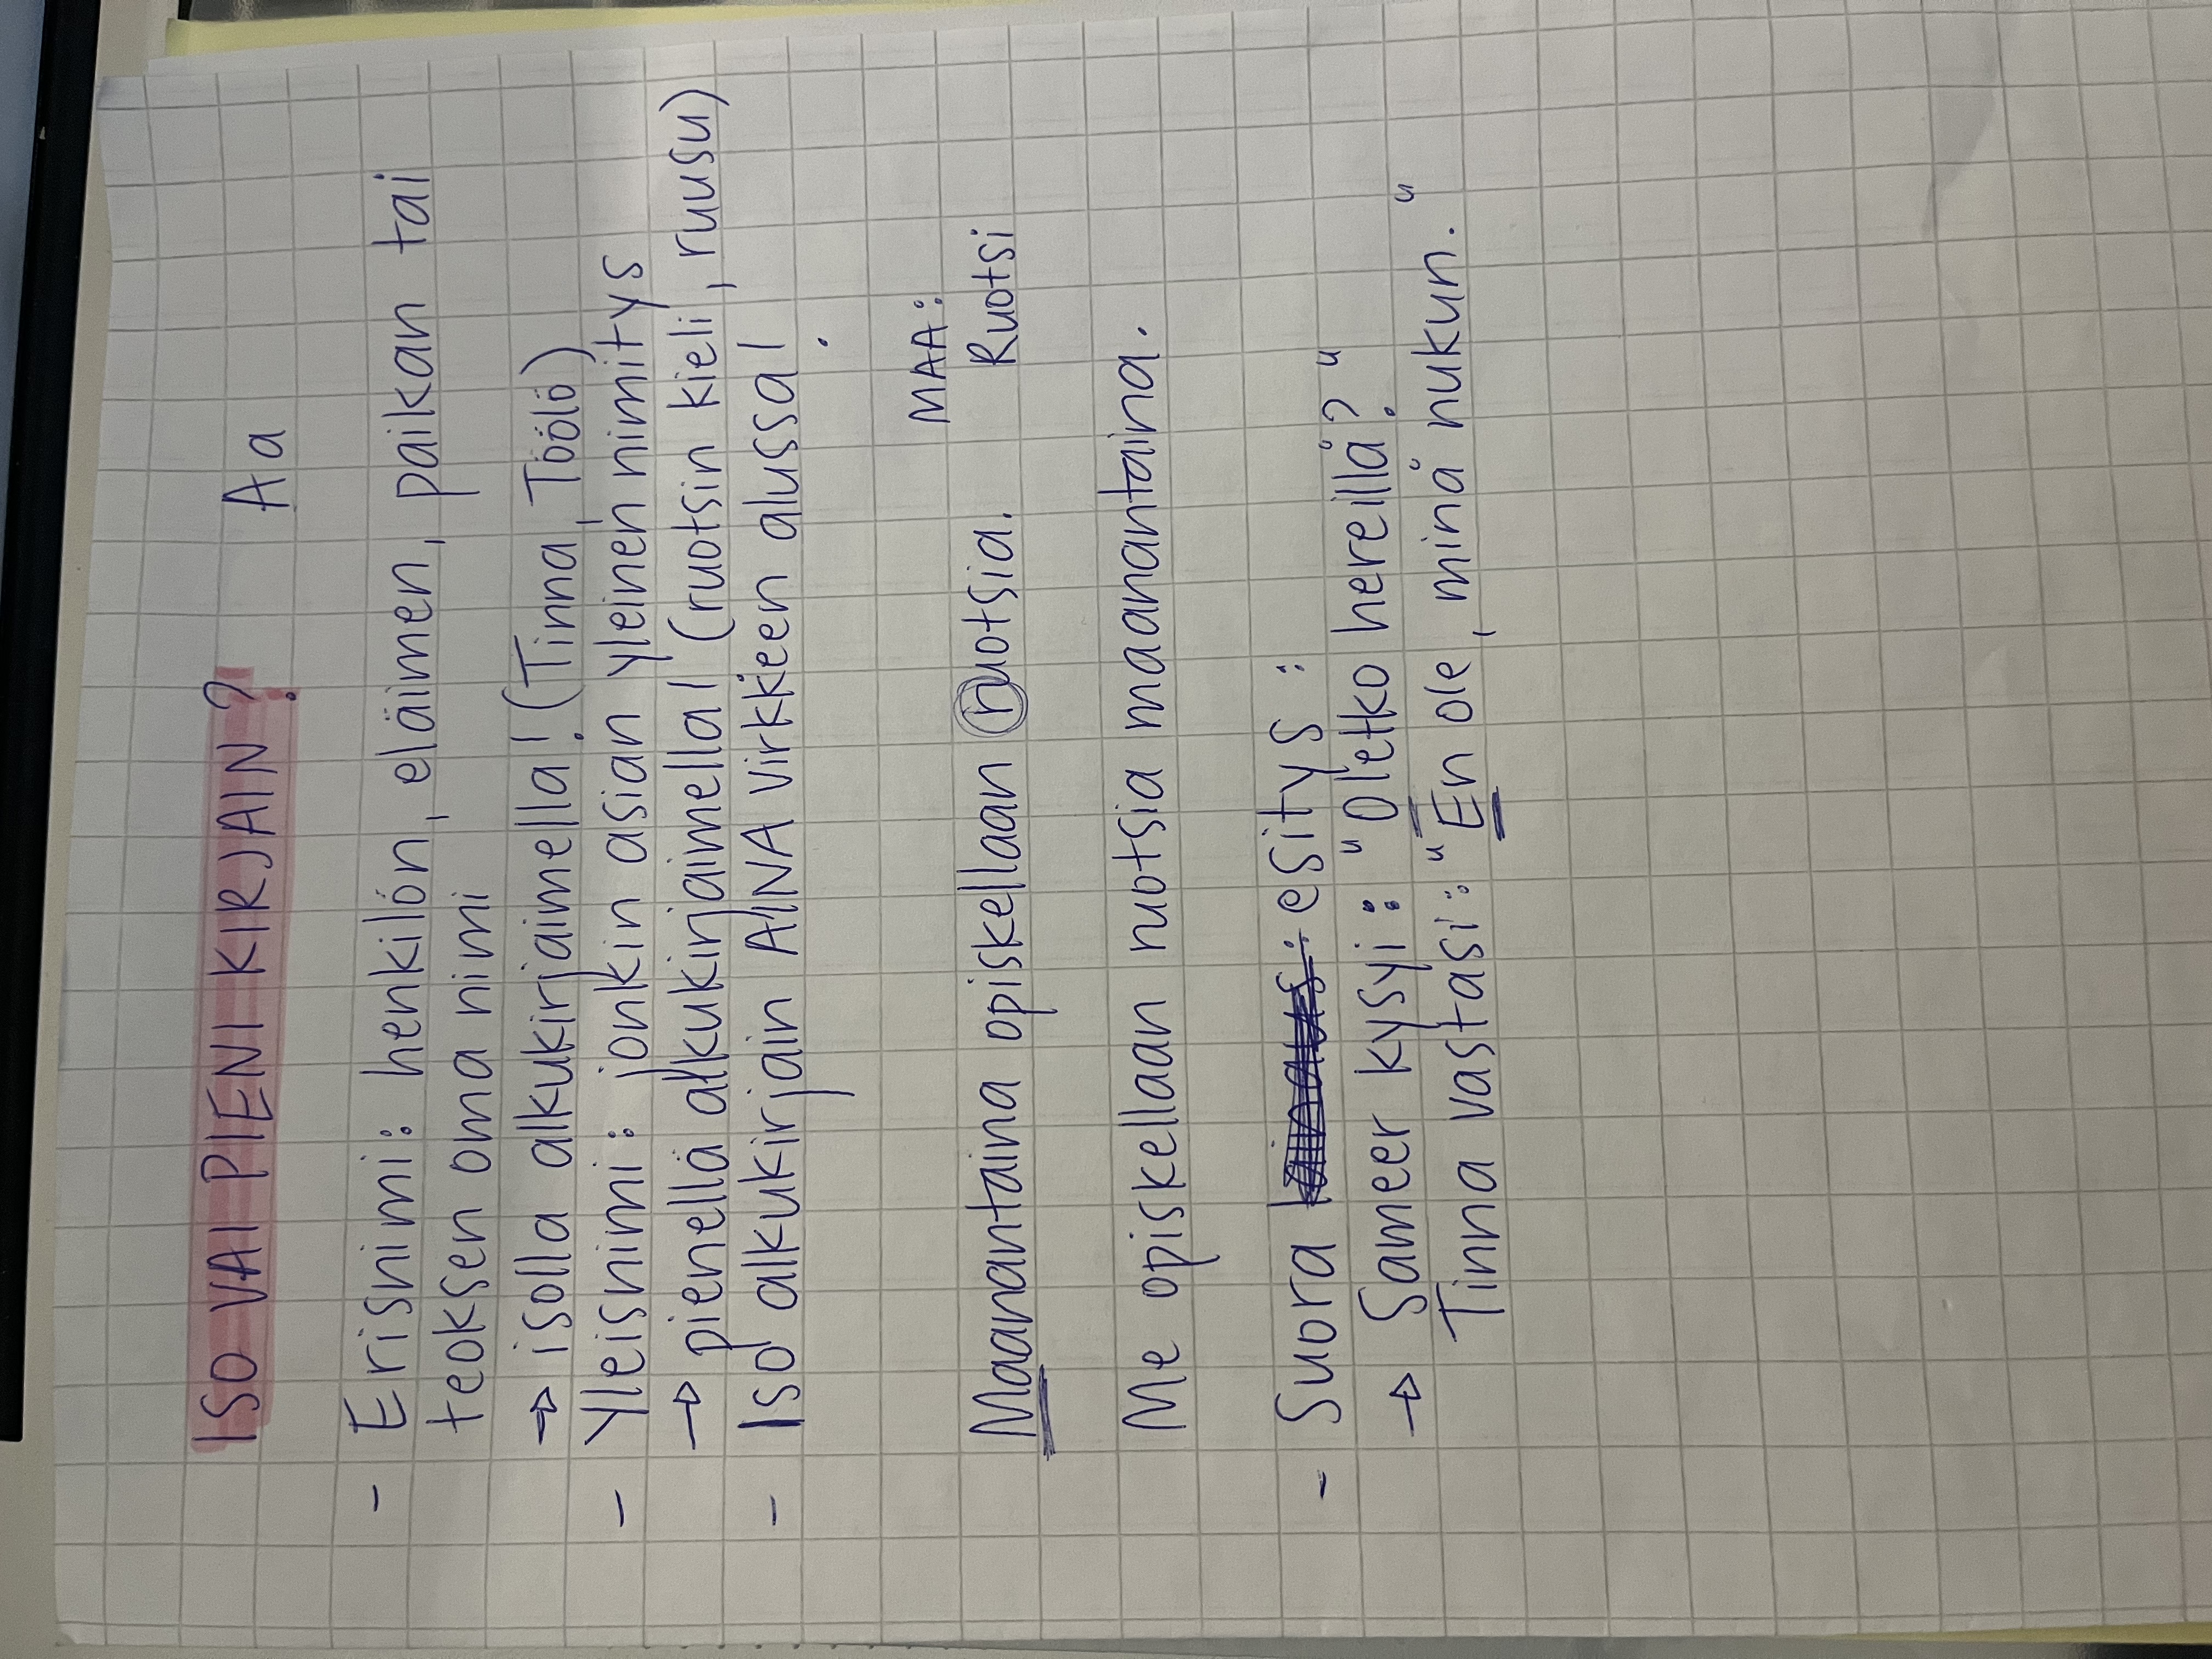 ISO VAI PIENI KIRJAIN? Aa
- Erisnimi: henkilön, eläimen, paikan tai
teoksen oma nimi
→ isolla alkukirjaimella! (Tinna, Töölö)
- Yleisnimi: jonkin asian yleinen nimitys
→ pienellä alkukirjaimella! (ruotsin kieli, ruusu)
- Iso alkukirjain AINA virkkeen alussa!
MAA:
Maanantaina opiskellaan ruotsia. Ruotsi
Me opiskellaan ruotsia maanantaina.
- Suora esitys:
→ Sameer kysyi: "Oletko hereillä?"
Tinna vastasi: "En ole, minä nukun."